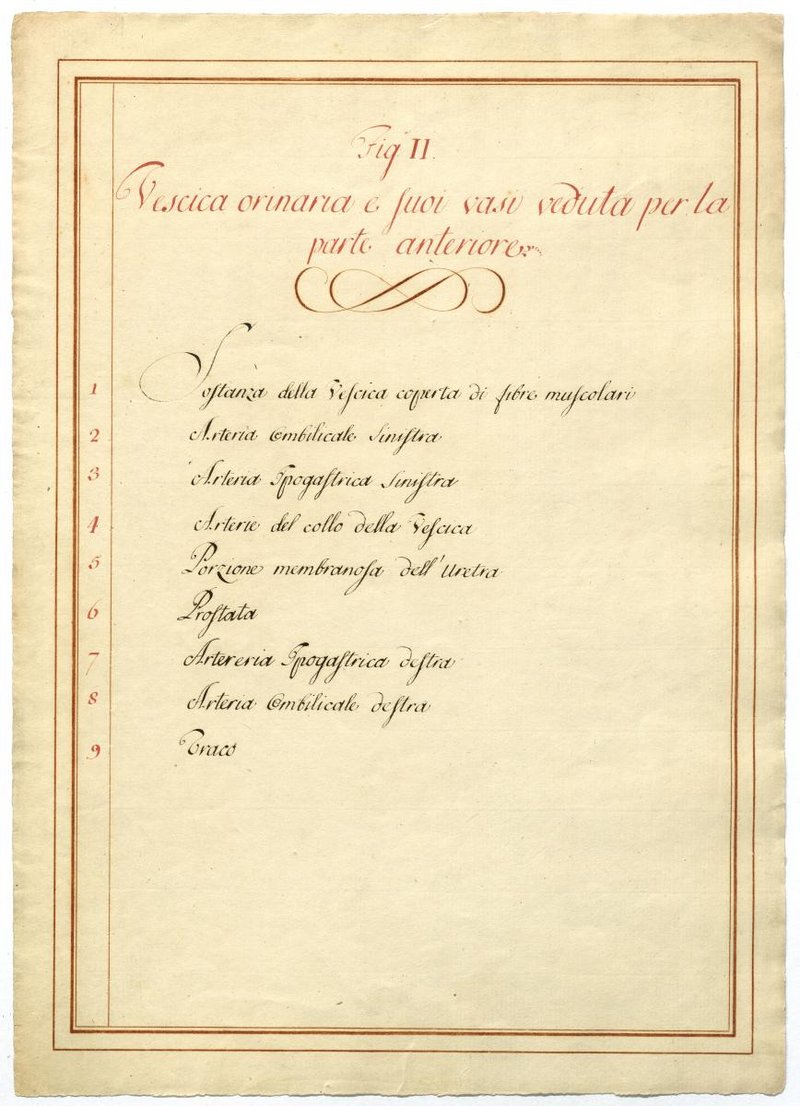 Figª II.
Vescica orinaria e suoi vasi veduta per la
parte anteriore
1 Sostanza della Vescica coperta di fibre muscolari
2 Arteria Ombilicale Sinistra
3 Arteria Ipogastrica Sinistra
4 Arterie del collo della Vescica
5 Porzione membranosa dell' Uretra
6 Prostata
7 Artereria Ipogastrica destra
8 Arteria Ombilicale destra
9 Oraco